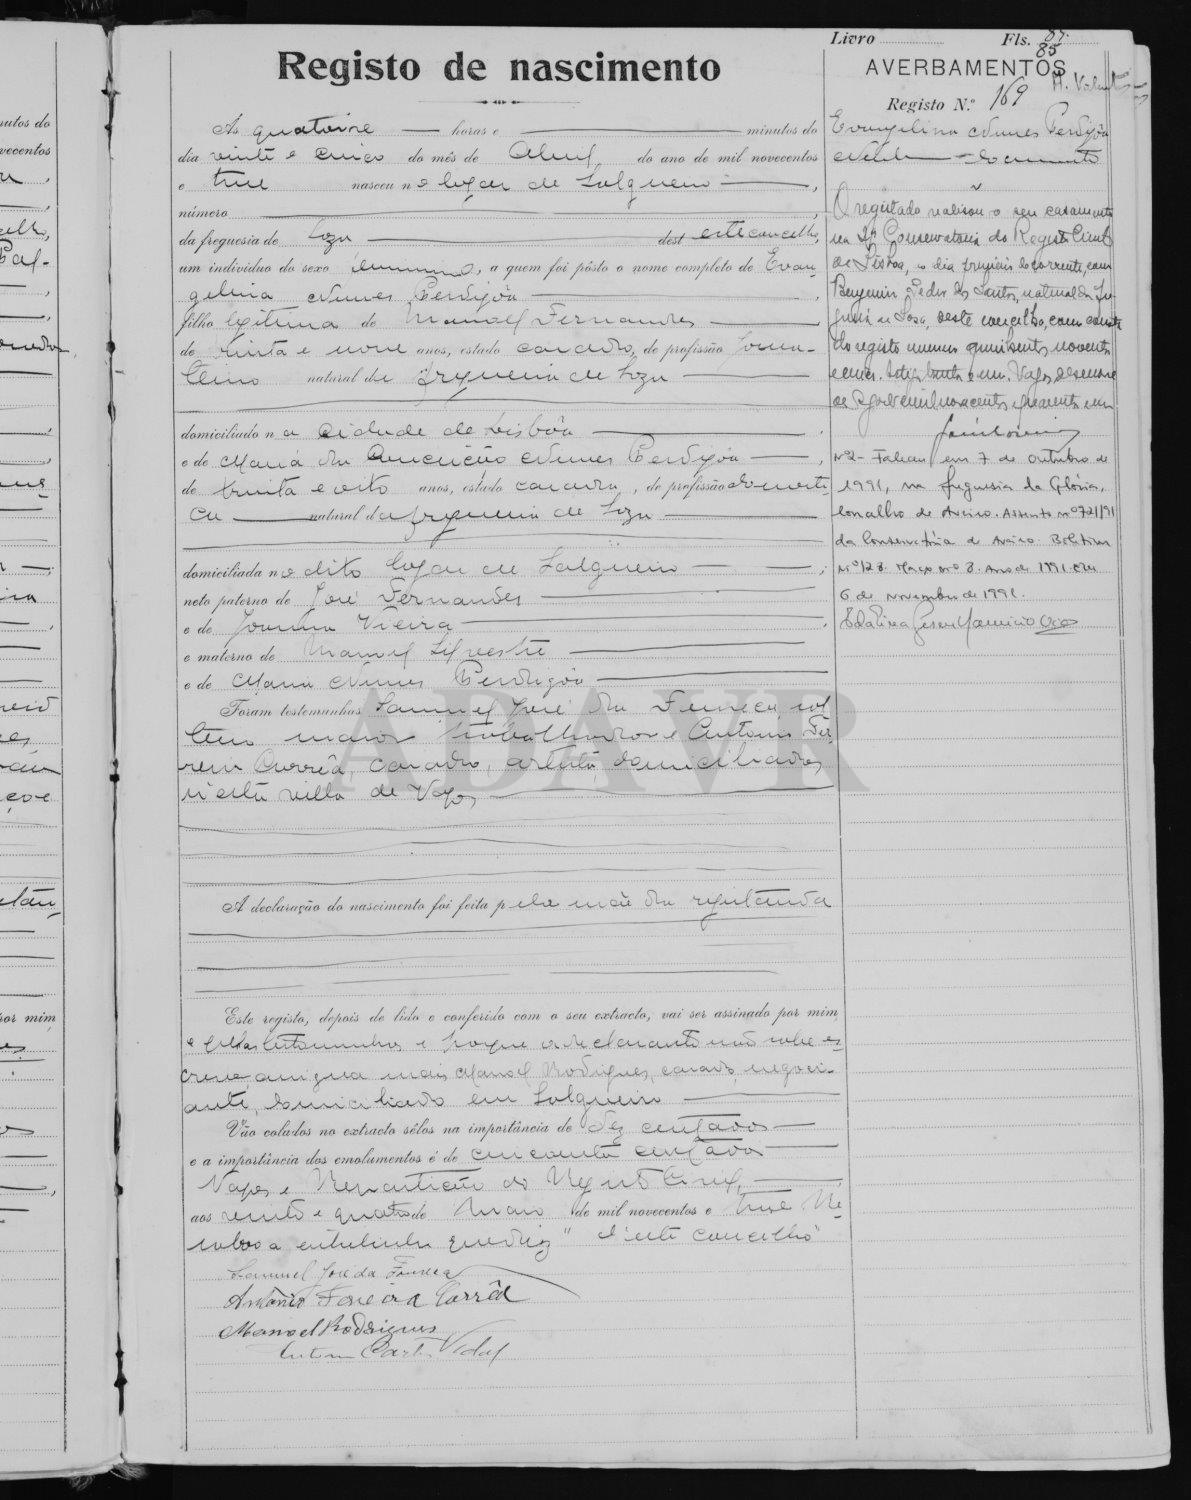 Livro Fls. 85
Registo de nascimento
AVERBAMENTOS
Registo N.º 169
Às quatorze horas e minutos do
dia vinte e cinco do mês de Abril do ano de mil novecentos
e treze nasceu no logar de Salgueiro,
número
da freguesia de Soza dest este concelho,
um indivíduo do sexo feminino, a quem foi pôsto o nome completo de Evan-
gelina Nunes Perdigôa
filho legitima de Manoel Fernandes
de trinta e nove anos, estado casado, de profissão jorna-
leiro natural da freguesia de Soza
domiciliado na cidade de Lisbôa
e de Maria da Conceição Nunes Perdigôa,
de trinta e oito anos, estado casada, de profissão domesti-
ca natural da freguesia de Soza
domiciliada no dito logar de Salgueiro;
neto paterno de José Fernandes
e de Joanna Vieira,
e materno de Manoel Silvestre
e de Maria Nunes Perdigôa
Foram testemunhas Samuel José da Fonseca, sol
teiro maior trabalhador e Antonio Fer
reira Corrêa, casado, artista, domiciliados
n'esta villa de Vagos
ADAVR
A declaração do nascimento foi feita pela mãe da registanda
Este registo, depois de lido e conferido com o seu extracto, vai ser assinado por mim
e pelas testemunhas e porque a declarante não sabe es
creve, assigna mais Manoel Rodrigues, casado, negoci-
ante, domiciliado em Salgueiro
Vão colados no extracto sêlos na importância de dez centavos
e a importância dos emolumentos é de cincoenta centavos
Vagos e Repartição do Registo Civil,
aos vinte e quatro de Maio de mil novecentos e treze Re
salvo a entrelinha que diz "d'este concelho"
Samuel José da Fonseca
António Ferreira Corrêa
Manoel Rodrigues
Evangelina Nunes Perdigôa
O registado realisou o seu casamento
na 2ª Conservatoria do Registo Civil
de Lisboa, no dia primeiro do corrente, com
Benjamin Pedro dos Santos, natural da fre
guesia de Soza, deste concelho, como consta
do registo numero quinhentos noventa
e cinco. Vagos, desenove
de Agosto de mil novecentos e quarenta e um
Nº2 - Faleceu em 7 de Outubro de
1991, na freguesia da Glória,
Concelho de Aveiro. Assento nº 721/91
da Conservatória de Aveiro. Boletim
Nº 128. Maço nº 8. Ano de 1991. Em
6 de Novembro de 1991.